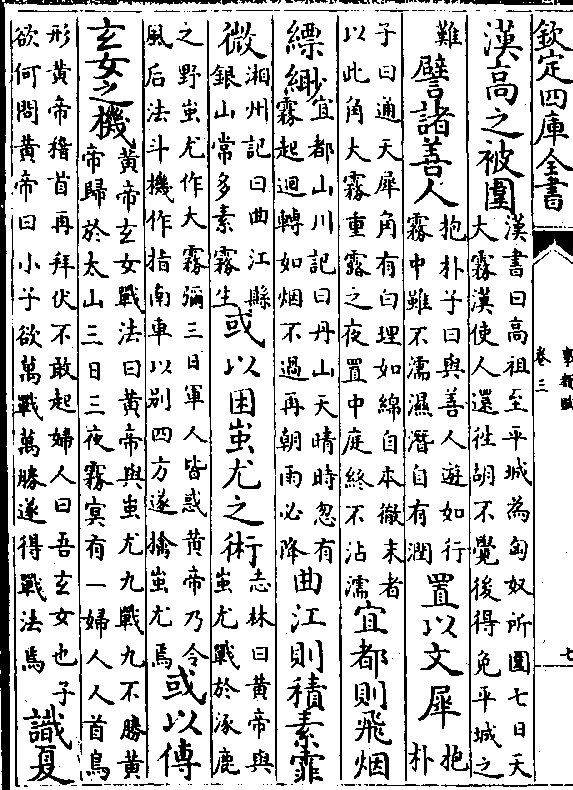 欽定四庫全書
事類賦
卷三
七
漢高之被圍漢書曰高祖至平城為匈奴所圍七日天大霧漢使人還徃胡不覺後得免平城之
難譬諸善人抱朴子曰與善人遊如行霧中雖不濡濕潛自有潤置以文犀抱朴
子曰通天犀角有白理如綿自本徹末者以此角大霧重露之夜置中庭終不沾濡宜都則飛烟
縹緲宜都山川記曰丹山天晴時忽有霧起迴轉如烟不過再朝雨必降曲江則積素霏
微湘州記曰曲江縣銀山常多素霧生或以困蚩尤之術志林曰黄帝與蚩尤戰於涿鹿
之野蚩尤作大霧彌三日軍人皆惑黄帝乃令風后法斗機作指南車以别四方遂擒蚩尤焉或以傳
玄女之機黄帝玄女戰法曰黄帝與蚩尤九戰九不勝黄帝歸於太山三日三夜霧冥有一婦人人首鳥
形黄帝稽首再拜伏不敢起婦人曰吾玄女也子欲何問黄帝曰小子欲萬戰萬勝遂得戰法焉識夏